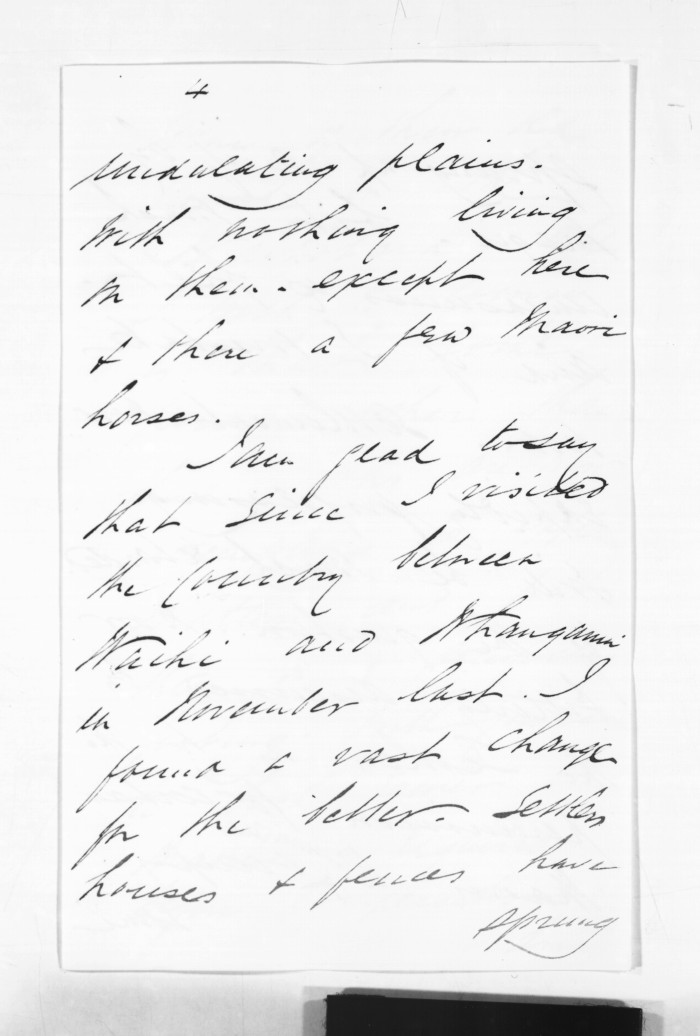 4
undulating plains.
With nothing living
on them. except here
& there a few Maori
horses.
I am glad to say
that since I visited
the Country between
Waihi and Whanganui
in November last. I
found a vast change
for the better. Settlers
houses & fences have
sprung